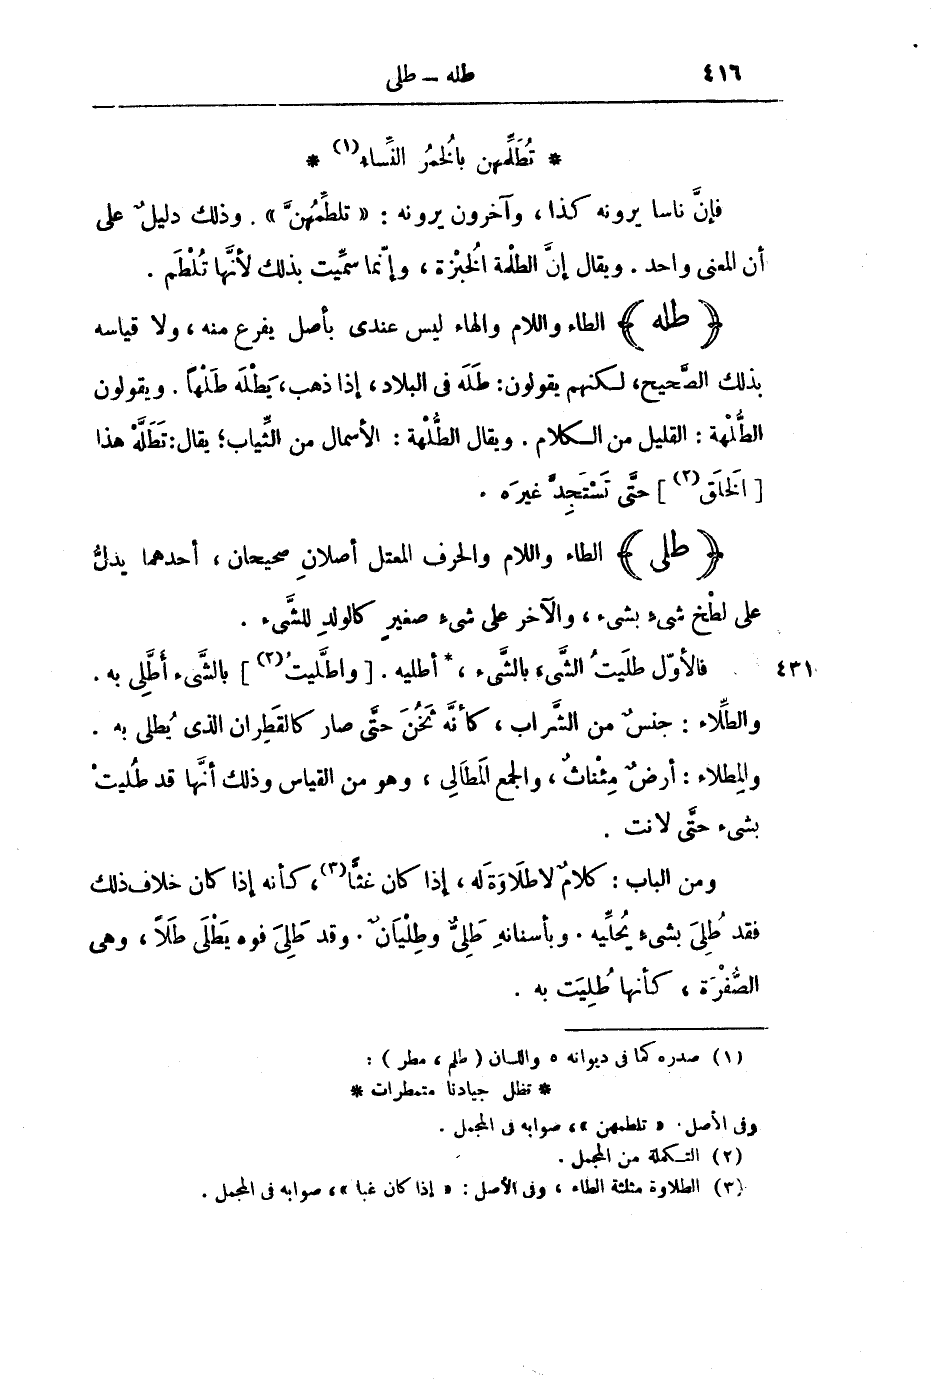 ٤١٦ طله — طلى
* تُطَلِّمهن بالخُمُر النِّساء(١) *
فإنَّ ناسا يرونه كذا ، وآخرون يرونه : « تلطِّمُهنَّ » . وذلك دليلٌ على
أن المعنى واحد . ويقال إنَّ الطلْمة الخُبْزة ، وإنّما سمِّيت بذلك لأنَّها تُلْطَم .
﴿ طله ﴾ الطاء واللام والهاء ليس عندى بأصل يفرع منه ، ولا قياسه
بذلك الصَّحيح، لكنهم يقولون: طَلَه فى البلاد ، إذا ذهب، يَطْلَه طَلْهاً . ويقولون
الطُّلْهة : القليل من الكلام . ويقال الطُّلْهة : الأسمال من الثِّياب؛ يقال: تَطَلَّهْ هذا
[ الخَلَق(٢) ] حتَّى تَسْتَجِدَّ غيرَه .
﴿ طلى ﴾ الطاء واللام والحرف المعتل أصلانِ صحيحان ، أحدهما يدلُّ
على لطْخ شىء بشىء ، والآخر على شىء صغيرٍ كالولدِ للشَّىء .
فالأوّل طلَيتُ الشَّىءَ بالشَّىء ، * أطليه . [ واطَّليتُ(٢) ] بالشَّىء أَطَّلِى به . ٤٣١
والطِّلاء : جنسٌ من الشَّراب ، كأنَّه ثَخُنَ حتَّى صار كالقَطِران الذى يُطلى به .
والمِطلاء : أرضٌ مِئْناثٌ ، والجمع المَطَالِى ، وهو من القياس وذلك أنَّها قد طُليتْ
بشىء حتَّى لانت .
ومن الباب : كلامٌ لا طلَاوَة له ، إذا كان غثًّا(٣)، كأنه إذا كان خلاف ذلك
فقد طُلِىَ بشىءٍ يُحلِّيه . وبأسنانهِ طَلِىٌّ وطِلْيَانٌ . وقد طَلِىَ فوه يَطْلَى طَلًا ، وهى
الصُّفْرَة ، كأنها طُلِيَت به .
(١) صدره كما فى ديوانه ٥ واللسان ( طلم ، مطر ) :
* تظل جيادنا متمطرات *
وفى الأصل . « تلطمهن »، صوابه فى المجمل .
(٢) التكملة من المجمل .
(٣) الطلاوة مثلثة الطاء ، وفى الأصل : « إذا كان غبا »، صوابه فى المجمل .